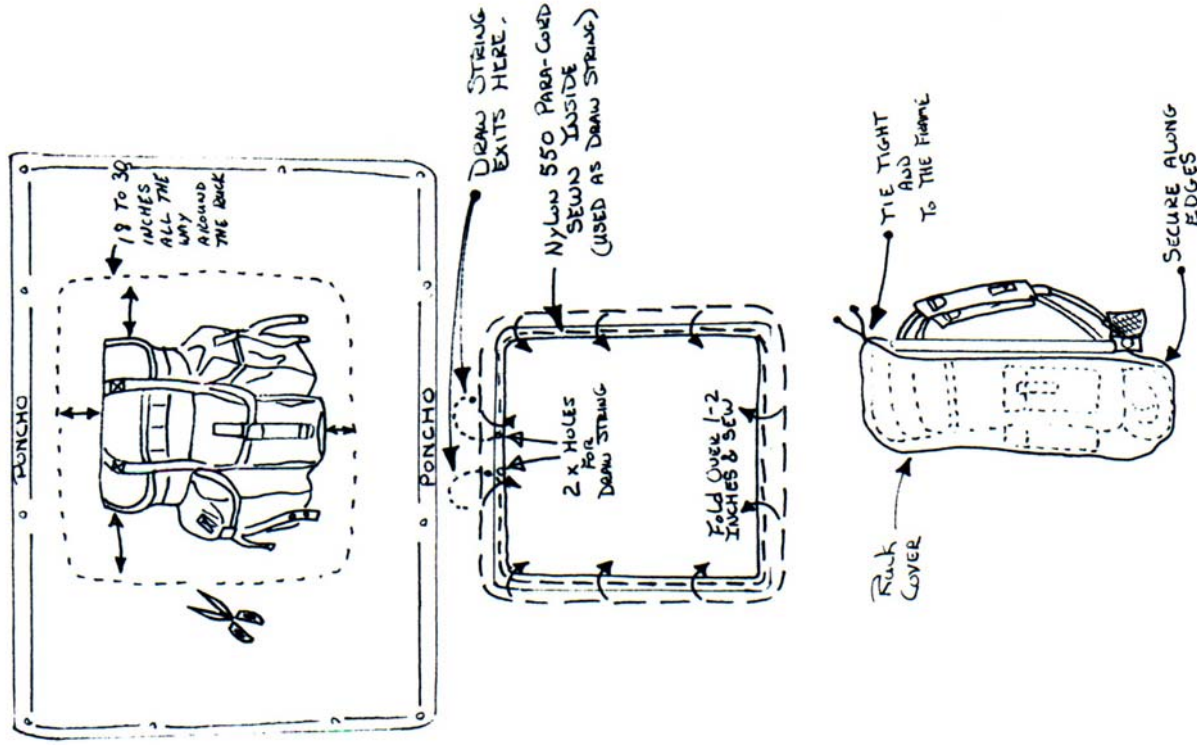 PONCHO
18 TO 30
INCHES
ALL THE
WAY
AROUND
THE RUCK
PONCHO
DRAW STRING
EXITS HERE.
NYLON 550 PARA-CORD
SEWN INSIDE
(USED AS DRAW STRING)
2 X HOLES
FOR
DRAW STRING
FOLD OVER 1-2
INCHES & SEW
TIE TIGHT
AND
TO THE FRAME
RUCK
COVER
SECURE ALONG
EDGES